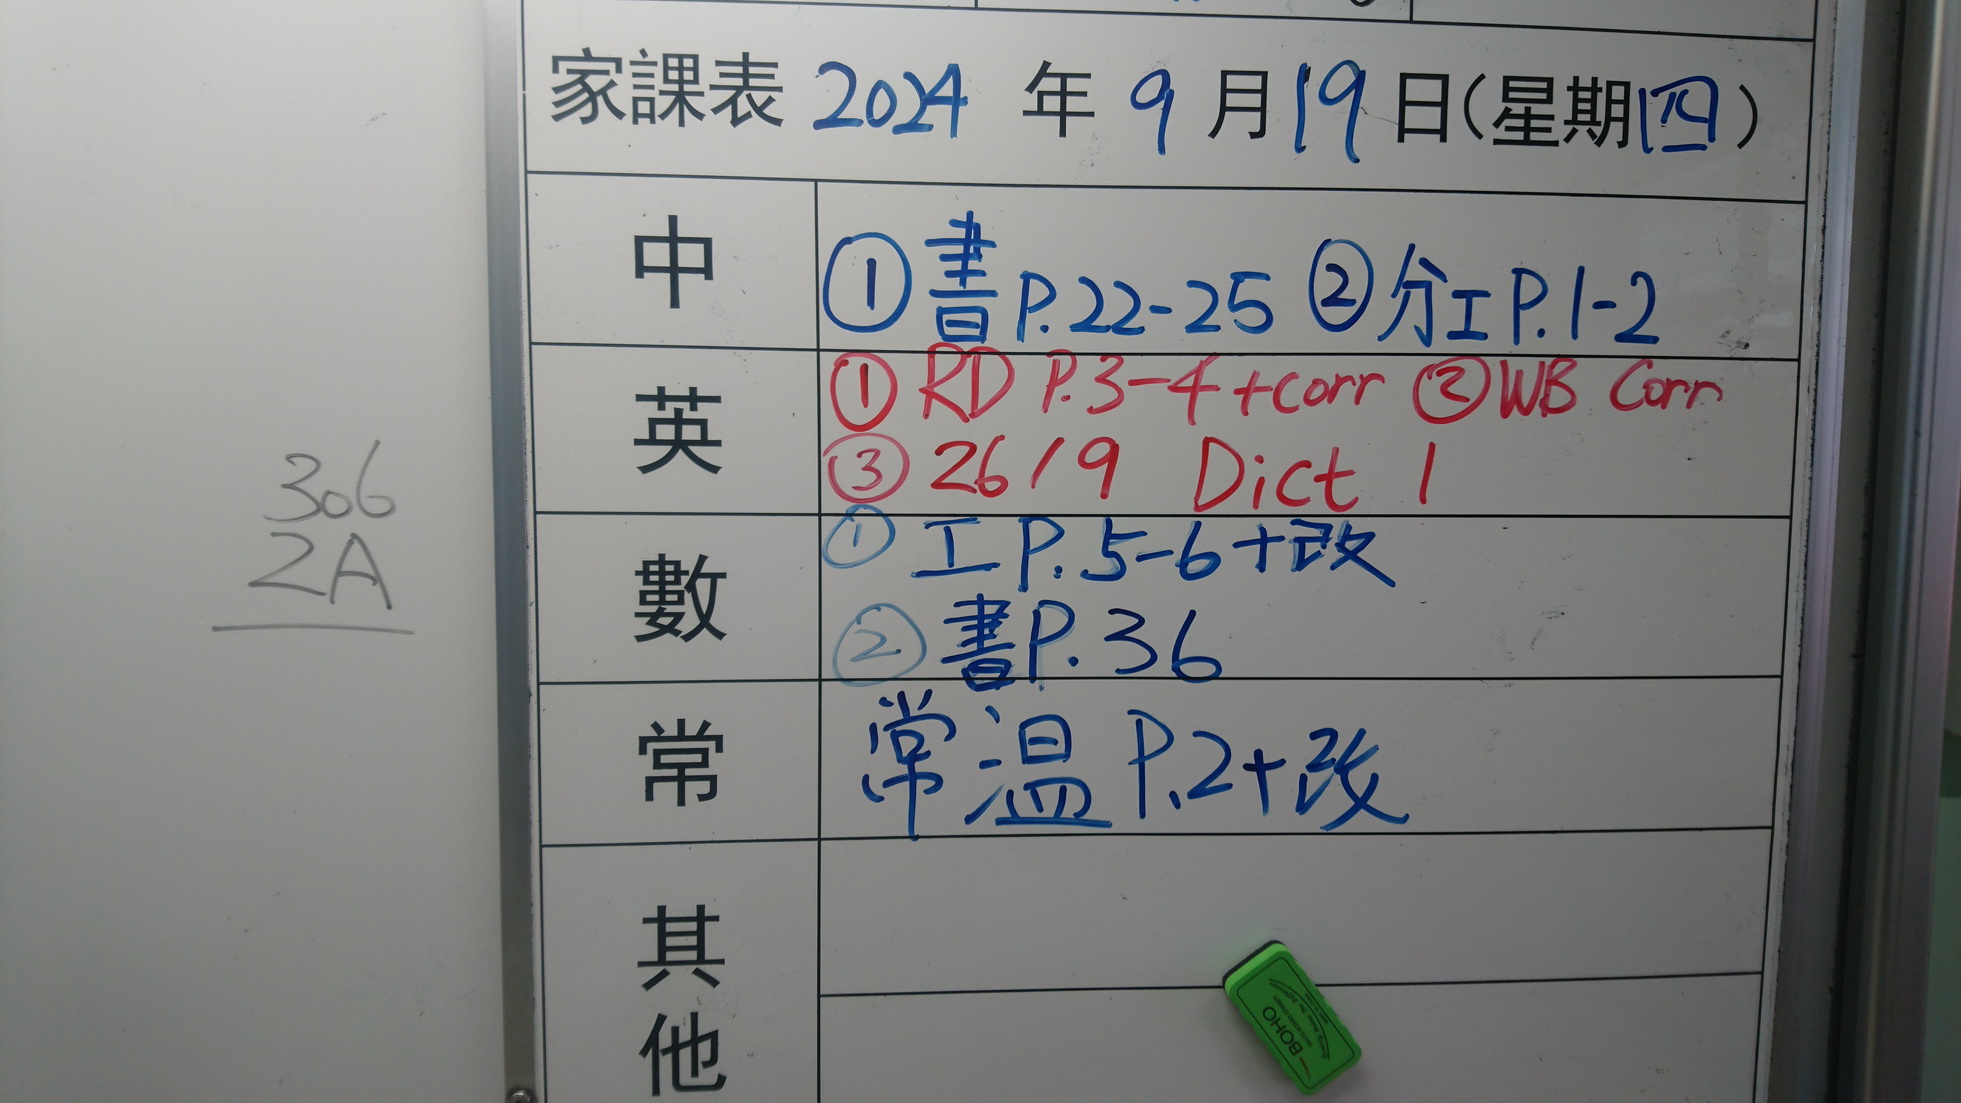 家課表 2024 年 9 月 19 日(星期四)
中
① 書 P.22-25 ② 分工 P.1-2
英
① RD P.3-4 +corr ② WB Corr
③ 26/9 Dict 1
數
① 工 P.5-6 +改
② 書 P.36
常
常溫 P.2+改
其他
306
2A
BOHO